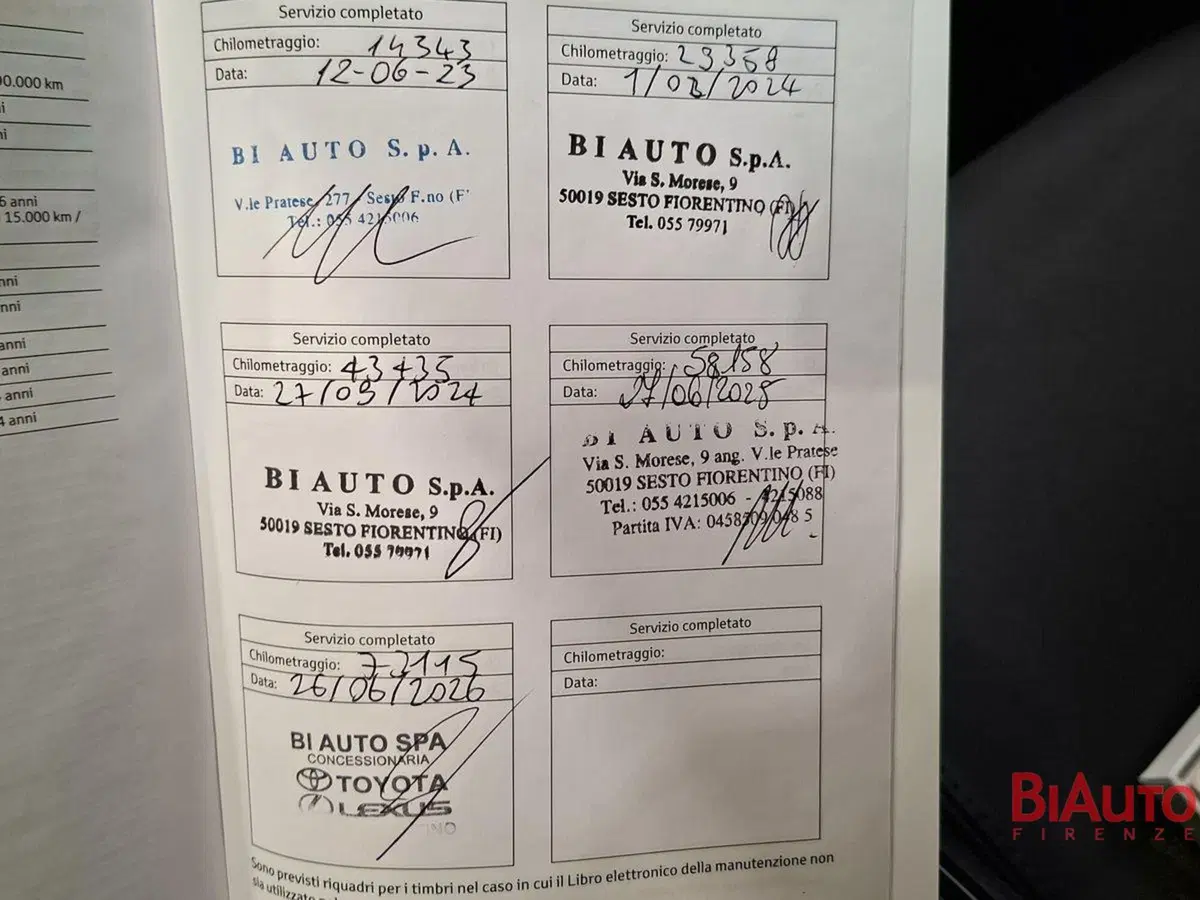 90.000 km
6 anni
15.000 km /
anni
anni
anni
4 anni
Servizio completato
Chilometraggio: 14343
Data: 12-06-23
BI AUTO S. p. A.
V.le Pratese, 277 / Sesto F.no (F
Tel.: 055 4215006
Servizio completato
Chilometraggio: 23358
Data: 1/03/2024
BI AUTO S.p.A.
Via S. Morese, 9
50019 SESTO FIORENTINO (FI)
Tel. 055 79971
Servizio completato
Chilometraggio: 43435
Data: 27/09/2024
BI AUTO S.p.A.
Via S. Morese, 9
50019 SESTO FIORENTINO (FI)
Tel. 055 79971
Servizio completato
Chilometraggio: 58158
Data: 27/06/2025
BI AUTO S. p. A.
Via S. Morese, 9 ang. V.le Pratese
50019 SESTO FIORENTINO (FI)
Tel.: 055 4215006 - 4215088
Partita IVA:
Servizio completato
Chilometraggio: 72115
Data: 26/06/2026
BI AUTO SPA
CONCESSIONARIA
TOYOTA
LEXUS
Servizio completato
Chilometraggio:
Data:
Sono previsti riquadri per i timbri nel caso in cui il Libro elettronico della manutenzione non
sia utilizzato
BIAUTO
FIRENZE